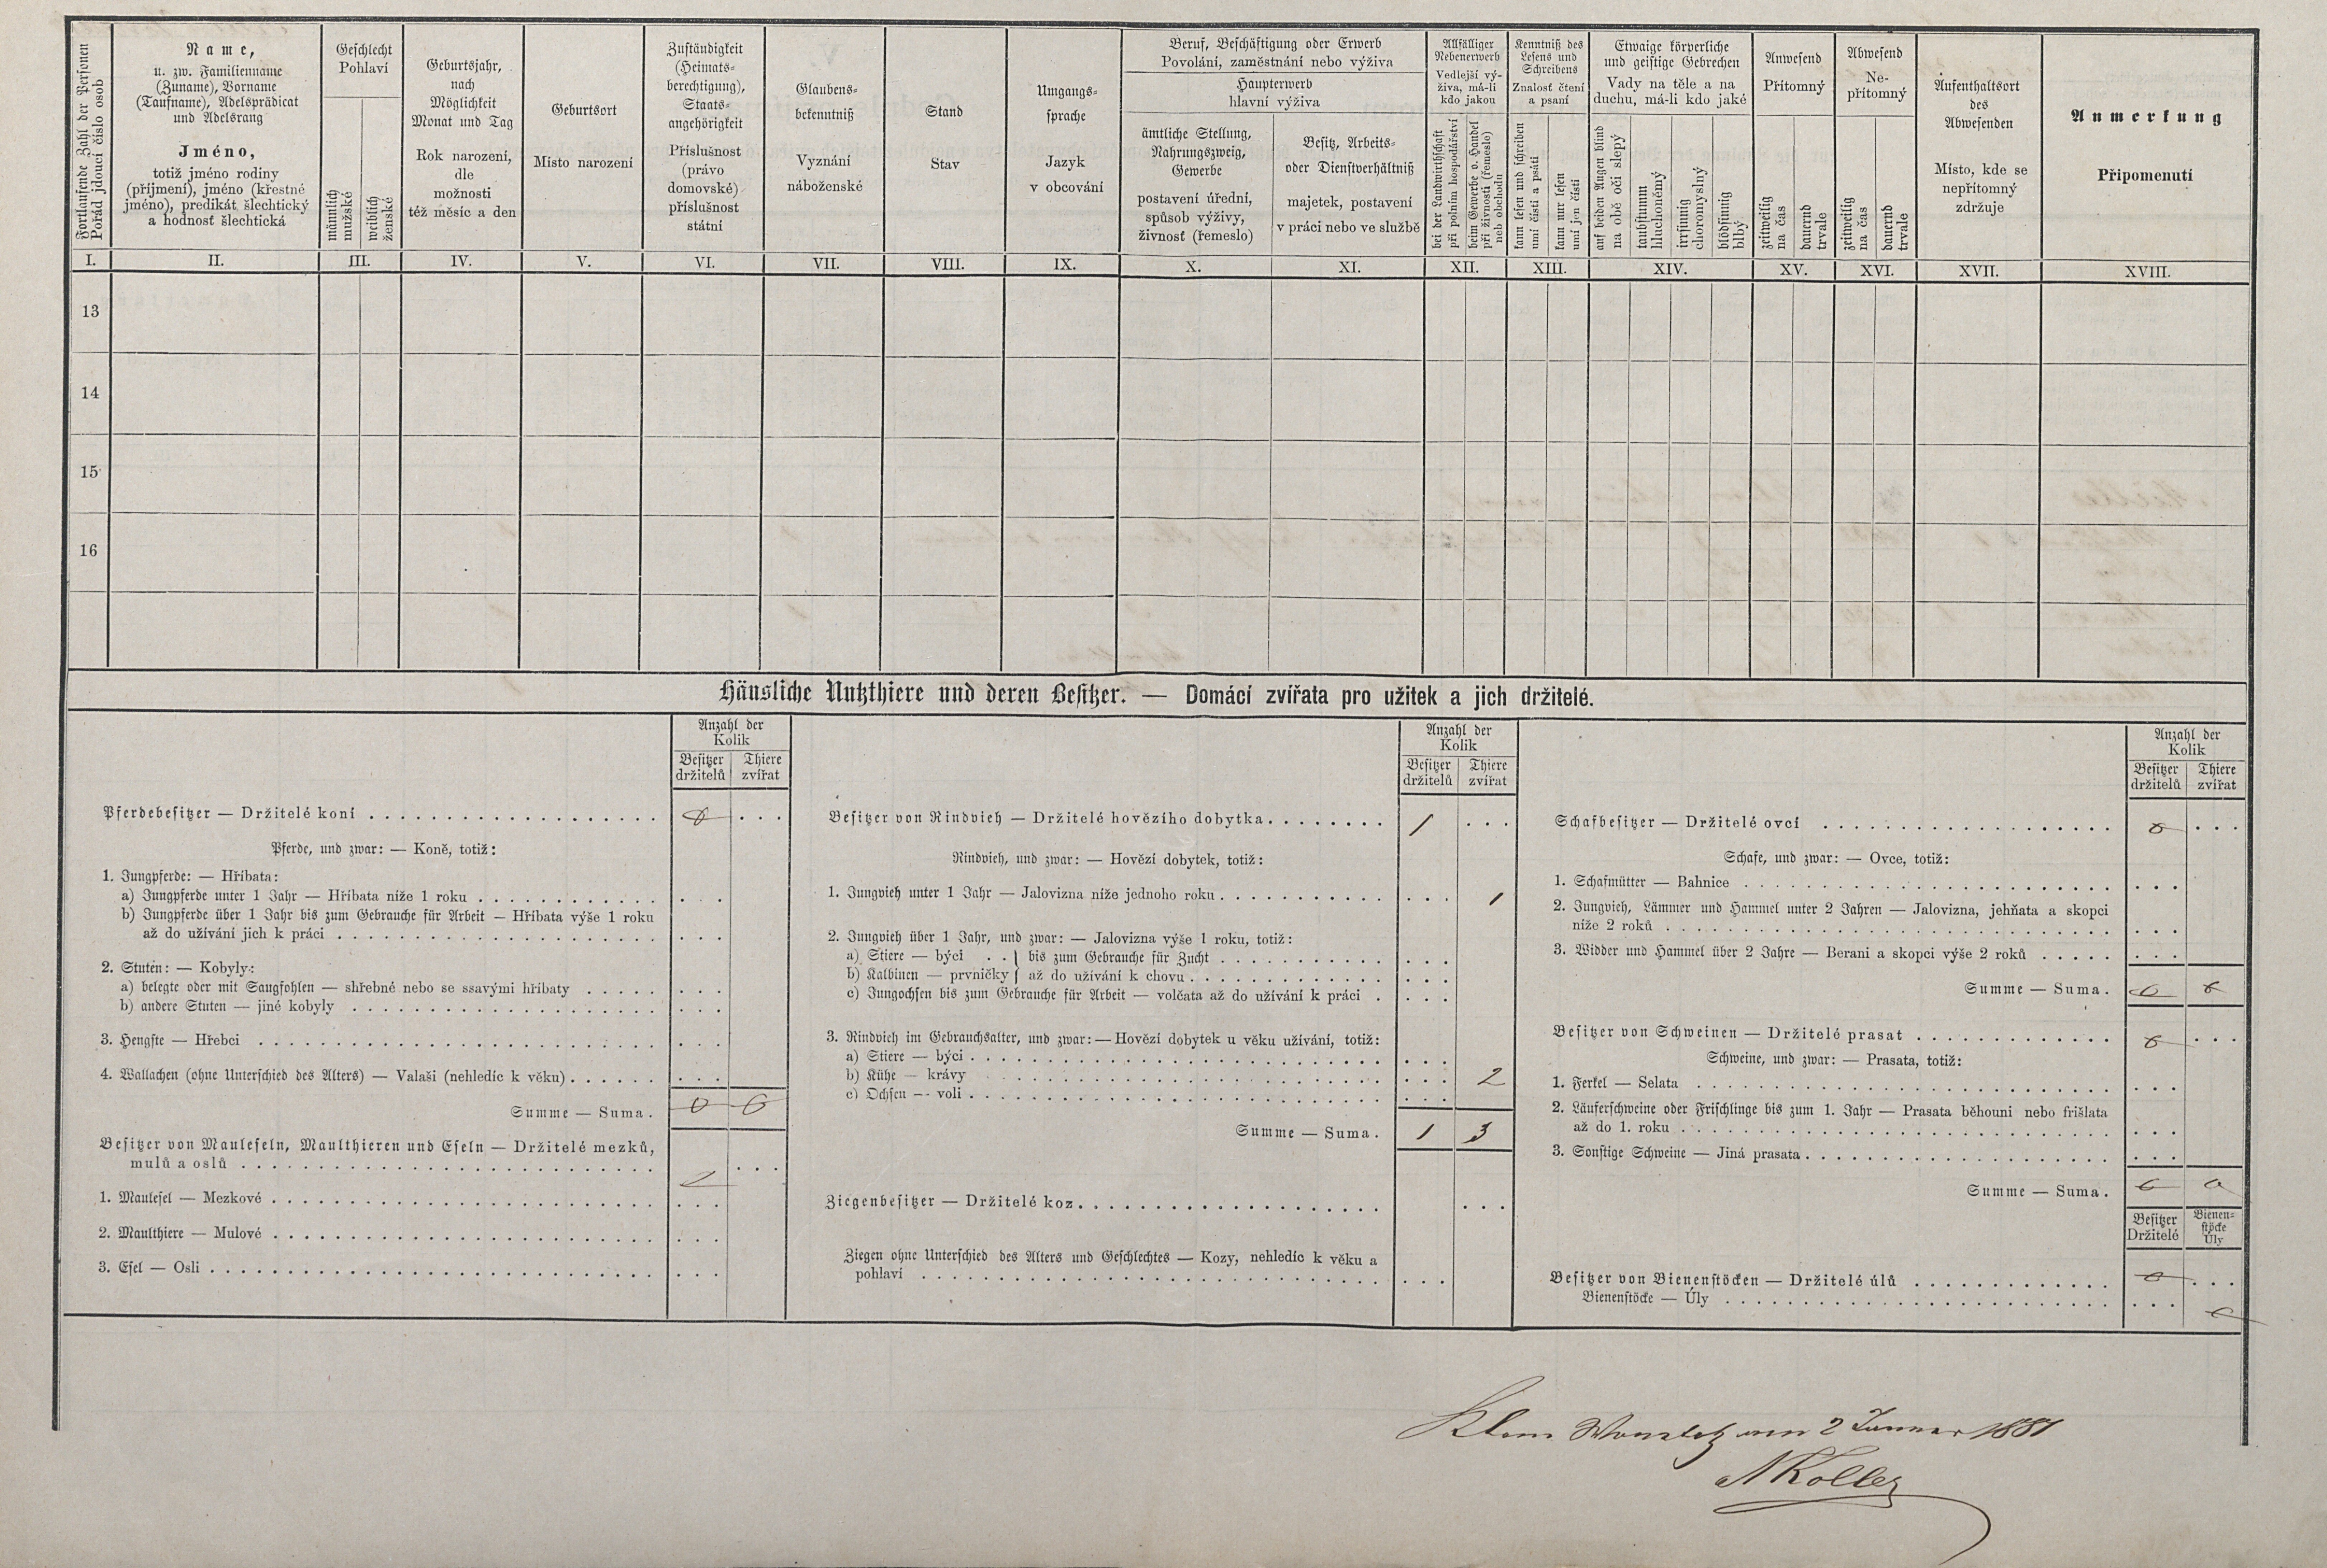 Fortlaufende Zahl der Personen
Pořád jdoucí číslo osob
Name,
u. zw. Familienname
(Zuname), Vorname
(Taufname), Adelsprädicat
und Adelsrang
Jméno,
totiž jméno rodiny
(příjmení), jméno (křestné
jméno), predikát šlechtický
a hodnosť šlechtická
Geschlecht
Pohlaví
männlich
mužské
weiblich
ženské
Geburtsjahr,
nach
Möglichkeit
Monat und Tag
Rok narození,
dle
možnosti
též měsíc a den
Geburtsort
Místo narození
Zuständigkeit
(Heimats-
berechtigung),
Staats-
angehörigkeit
Příslušnost
(právo
domovské)
příslušnost
státní
Glaubens-
bekenntniß
Vyznání
náboženské
Stand
Stav
Umgangs-
sprache
Jazyk
v obcování
Beruf, Beschäftigung oder Erwerb
Povolání, zaměstnání nebo výživa
Haupterwerb
hlavní výživa
ämtliche Stellung,
Nahrungszweig,
Gewerbe
postavení úřední,
spůsob výživy,
živnosť (řemeslo)
Besitz, Arbeits-
oder Dienstverhältniß
majetek, postavení
v práci nebo ve službě
Allfälliger
Nebenerwerb
Vedlejší vý-
živa, má-li
kdo jakou
bei der Landwirthschaft
při polním hospodářství
beim Gewerbe o. Handel
při živnosti (řemeslo)
neb obchodu
Kenntniß des
Lesens und
Schreibens
Znalosť čtení
a psaní
kann lesen und schreiben
umí čísti a psáti
kann nur lesen
umí jen čísti
Etwaige körperliche
und geistige Gebrechen
Vady na těle a na
duchu, má-li kdo jaké
auf beiden Augen blind
na obě oči slepý
taubstumm
hluchoněmý
irrsinnig
choromyslný
blödsinnig
blbý
Anwesend
Přítomný
zeitweilig
na čas
dauernd
trvale
Abwesend
Ne-
přítomný
zeitweilig
na čas
dauernd
trvale
Aufenthaltsort
des
Abwesenden
Místo, kde se
nepřítomný
zdržuje
Anmerkung
Připomenutí
I. II. III. IV. V. VI. VII. VIII. IX. X. XI. XII. XIII. XIV. XV. XVI. XVII. XVIII.
13
14
15
16
Häusliche Nutzthiere und deren Besitzer. — Domácí zvířata pro užitek a jich držitelé.
Anzahl der
Kolik
Besitzer Thiere
držitelů zvířat
Pferdebesitzer — Držitelé koní . . . 0
Pferde, und zwar: — Koně, totiž:
1. Jungpferde: — Hříbata:
a) Jungpferde unter 1 Jahr — Hříbata níže 1 roku
b) Jungpferde über 1 Jahr bis zum Gebrauche für Arbeit — Hříbata výše 1 roku
až do užívání jich k práci
2. Stuten: — Kobyly:
a) belegte oder mit Saugfohlen — shřebné nebo se ssavými hříbaty
b) andere Stuten — jiné kobyly
3. Hengste — Hřebci
4. Wallachen (ohne Unterschied des Alters) — Valaši (nehledíc k věku)
Summe — Suma. 0 0
Besitzer von Mauleseln, Maulthieren und Eseln — Držitelé mezků,
mulů a oslů
1. Maulesel — Mezkové
2. Maulthiere — Mulové
3. Esel — Osli
Anzahl der
Kolik
Besitzer Thiere
držitelů zvířat
Besitzer von Rindvieh — Držitelé hovězího dobytka. 1
Rindvieh, und zwar: — Hovězí dobytek, totiž:
1. Jungvieh unter 1 Jahr — Jalovizna níže jednoho roku 1
2. Jungvieh über 1 Jahr, und zwar: — Jalovizna výše 1 roku, totiž:
a) Stiere — býci . . } bis zum Gebrauche für Zucht
b) Kalbinen — prvničky } až do užívání k chovu
c) Jungochsen bis zum Gebrauche für Arbeit — volčata až do užívání k práci
3. Rindvieh im Gebrauchsalter, und zwar: — Hovězí dobytek u věku užívání, totiž:
a) Stiere — býci
b) Kühe — krávy 2
c) Ochsen — voli
Summe — Suma. 1 3
Ziegenbesitzer — Držitelé koz
Ziegen ohne Unterschied des Alters und Geschlechtes — Kozy, nehledíc k věku a
pohlaví
Anzahl der
Kolik
Besitzer Thiere
držitelů zvířat
Schafbesitzer — Držitelé ovcí 0
Schafe, und zwar: — Ovce, totiž:
1. Schafmütter — Bahnice
2. Jungvieh, Lämmer und Hammel unter 2 Jahren — Jalovizna, jehňata a skopci
níže 2 roků
3. Widder und Hammel über 2 Jahre — Berani a skopci výše 2 roků
Summe — Suma. 0 0
Besitzer von Schweinen — Držitelé prasat 0
Schweine, und zwar: — Prasata, totiž:
1. Ferkel — Selata
2. Läuferschweine oder Frischlinge bis zum 1. Jahr — Prasata běhouni nebo frišlata
až do 1. roku
3. Sonstige Schweine — Jiná prasata
Summe — Suma. 0 0
Besitzer Bienen-
stöcke
Držitelé Úly
Besitzer von Bienenstöcken — Držitelé úlů 0
Bienenstöcke — Úly 0
Klein am 2 Januar 1881
Koller